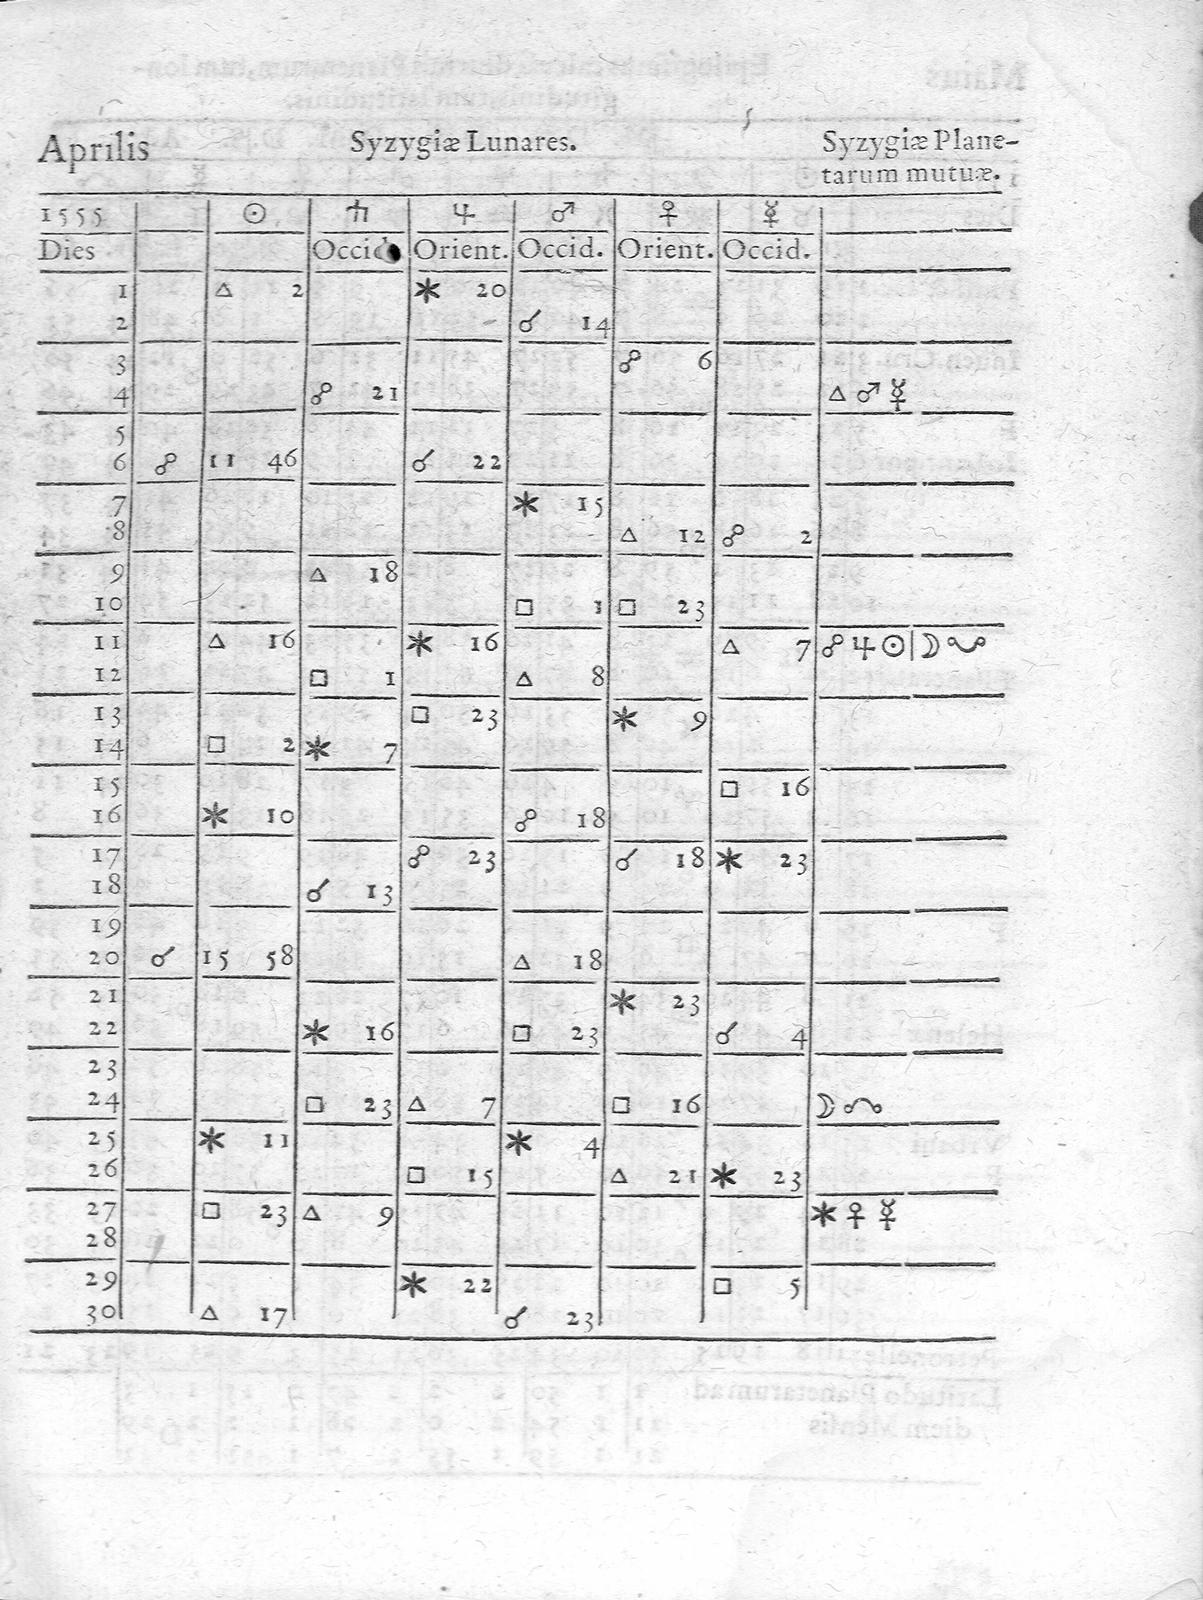 Aprilis Syzygiæ Lunares. Syzygiæ Plane-
tarum mutuæ.
1555 ☉ ♄ ♃ ♂ ♀ ☿
Dies Occid. Orient. Occid. Orient. Occid.
1 △ 2 ⚹ 20
2 ☌ 14
3 ☍ 6
4 ☍ 21 △ ♂ ☿
5
6 ☍ 11 46 ☌ 22
7 ⚹ 15
8 △ 12 ☍ 2
9 △ 18
10 □ 1 □ 23
11 △ 16 ⚹ 16 △ 7 ☍ ♃ ☉ | ☽ ☋
12 □ 1 △ 8
13 □ 23 ⚹ 9
14 □ 2 ⚹ 7
15 □ 16
16 ⚹ 10 ☍ 18
17 ☍ 23 ☌ 18 ⚹ 23
18 ☌ 13
19
20 ☌ 15 58 △ 18
21 ⚹ 23
22 ⚹ 16 □ 23 ☌ 4
23
24 □ 23 △ 7 □ 16 ☽ ☊
25 ⚹ 11 ⚹ 4
26 □ 15 △ 21 ⚹ 23
27 □ 23 △ 9 ⚹ ♀ ☿
28
29 ⚹ 22 □ 5
30 △ 17 ☌ 23